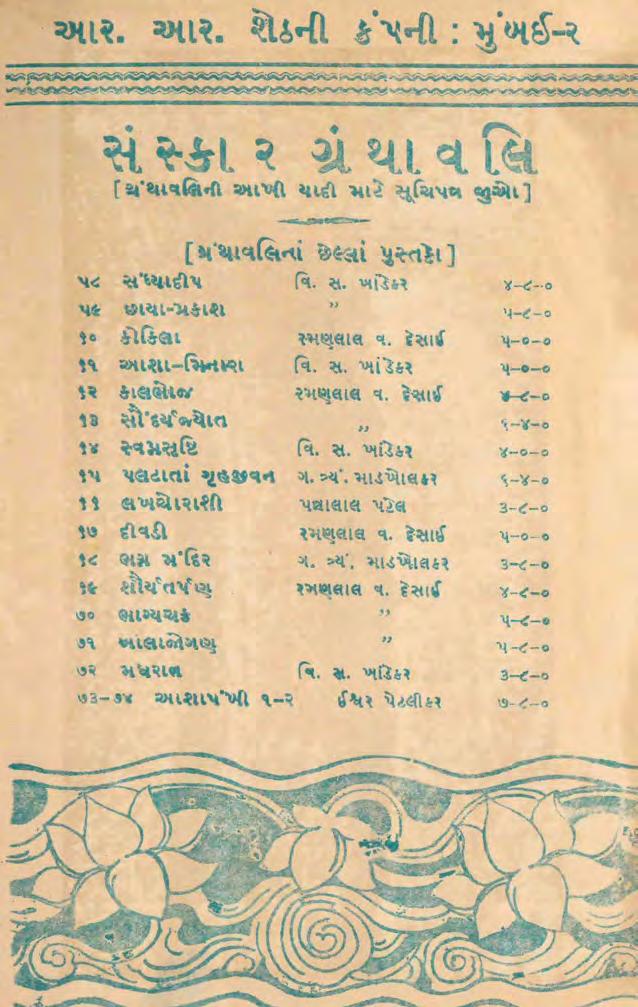 આર. આર. શેઠની કંપની : મુંબઈ-૨
સંસ્કાર ગ્રંથાવલિ
[ ગ્રંથાવલિની આખી યાદી માટે સૂચિપત્ર જુઓ ]
[ ગ્રંથાવલિનાં છેલ્લાં પુસ્તકો ]
૫૮ સંધ્યાદીપ વિ. સ. ખાંડેકર ૪-૮-૦
૫૯ છાયા-પ્રકાશ ” ૫-૮-૦
૬૦ કોકિલા રમણલાલ વ. દેસાઈ ૫-૦-૦
૬૧ આશા-મિનારા વિ. સ. ખાંડેકર ૫-૦-૦
૬૨ કાલભોજ રમણલાલ વ. દેસાઈ ૪-૮-૦
૬૩ સૌંદર્યજ્યોત ,, ૬-૪-૦
૬૪ સ્વપ્નસૃષ્ટિ વિ. સ. ખાંડેકર ૪-૦-૦
૬૫ પલટાતાં ગૃહજીવન ગ. ત્ર્યં. માડખોલકર ૬-૪-૦
૬૬ લખચોરાશી પન્નાલાલ પટેલ ૩-૮-૦
૬૭ દીવડી રમણલાલ વ. દેસાઈ ૫-૦-૦
૬૮ ભગ્ન મંદિર ગ. ત્ર્યં. માડખોલકર ૩-૮-૦
૬૯ શૌર્યતર્પણ રમણલાલ વ. દેસાઈ ૪-૮-૦
૭૦ ભાગ્યચક્ર ” ૫-૮-૦
૭૧ બાલાજોગણ ” ૫-૮-૦
૭૨ મધરાત વિ. સ. ખાંડેકર ૩-૮-૦
૭૩-૭૪ આશાપંખી ૧-૨ ઈશ્વર પેટલીકર ૭-૮-૦